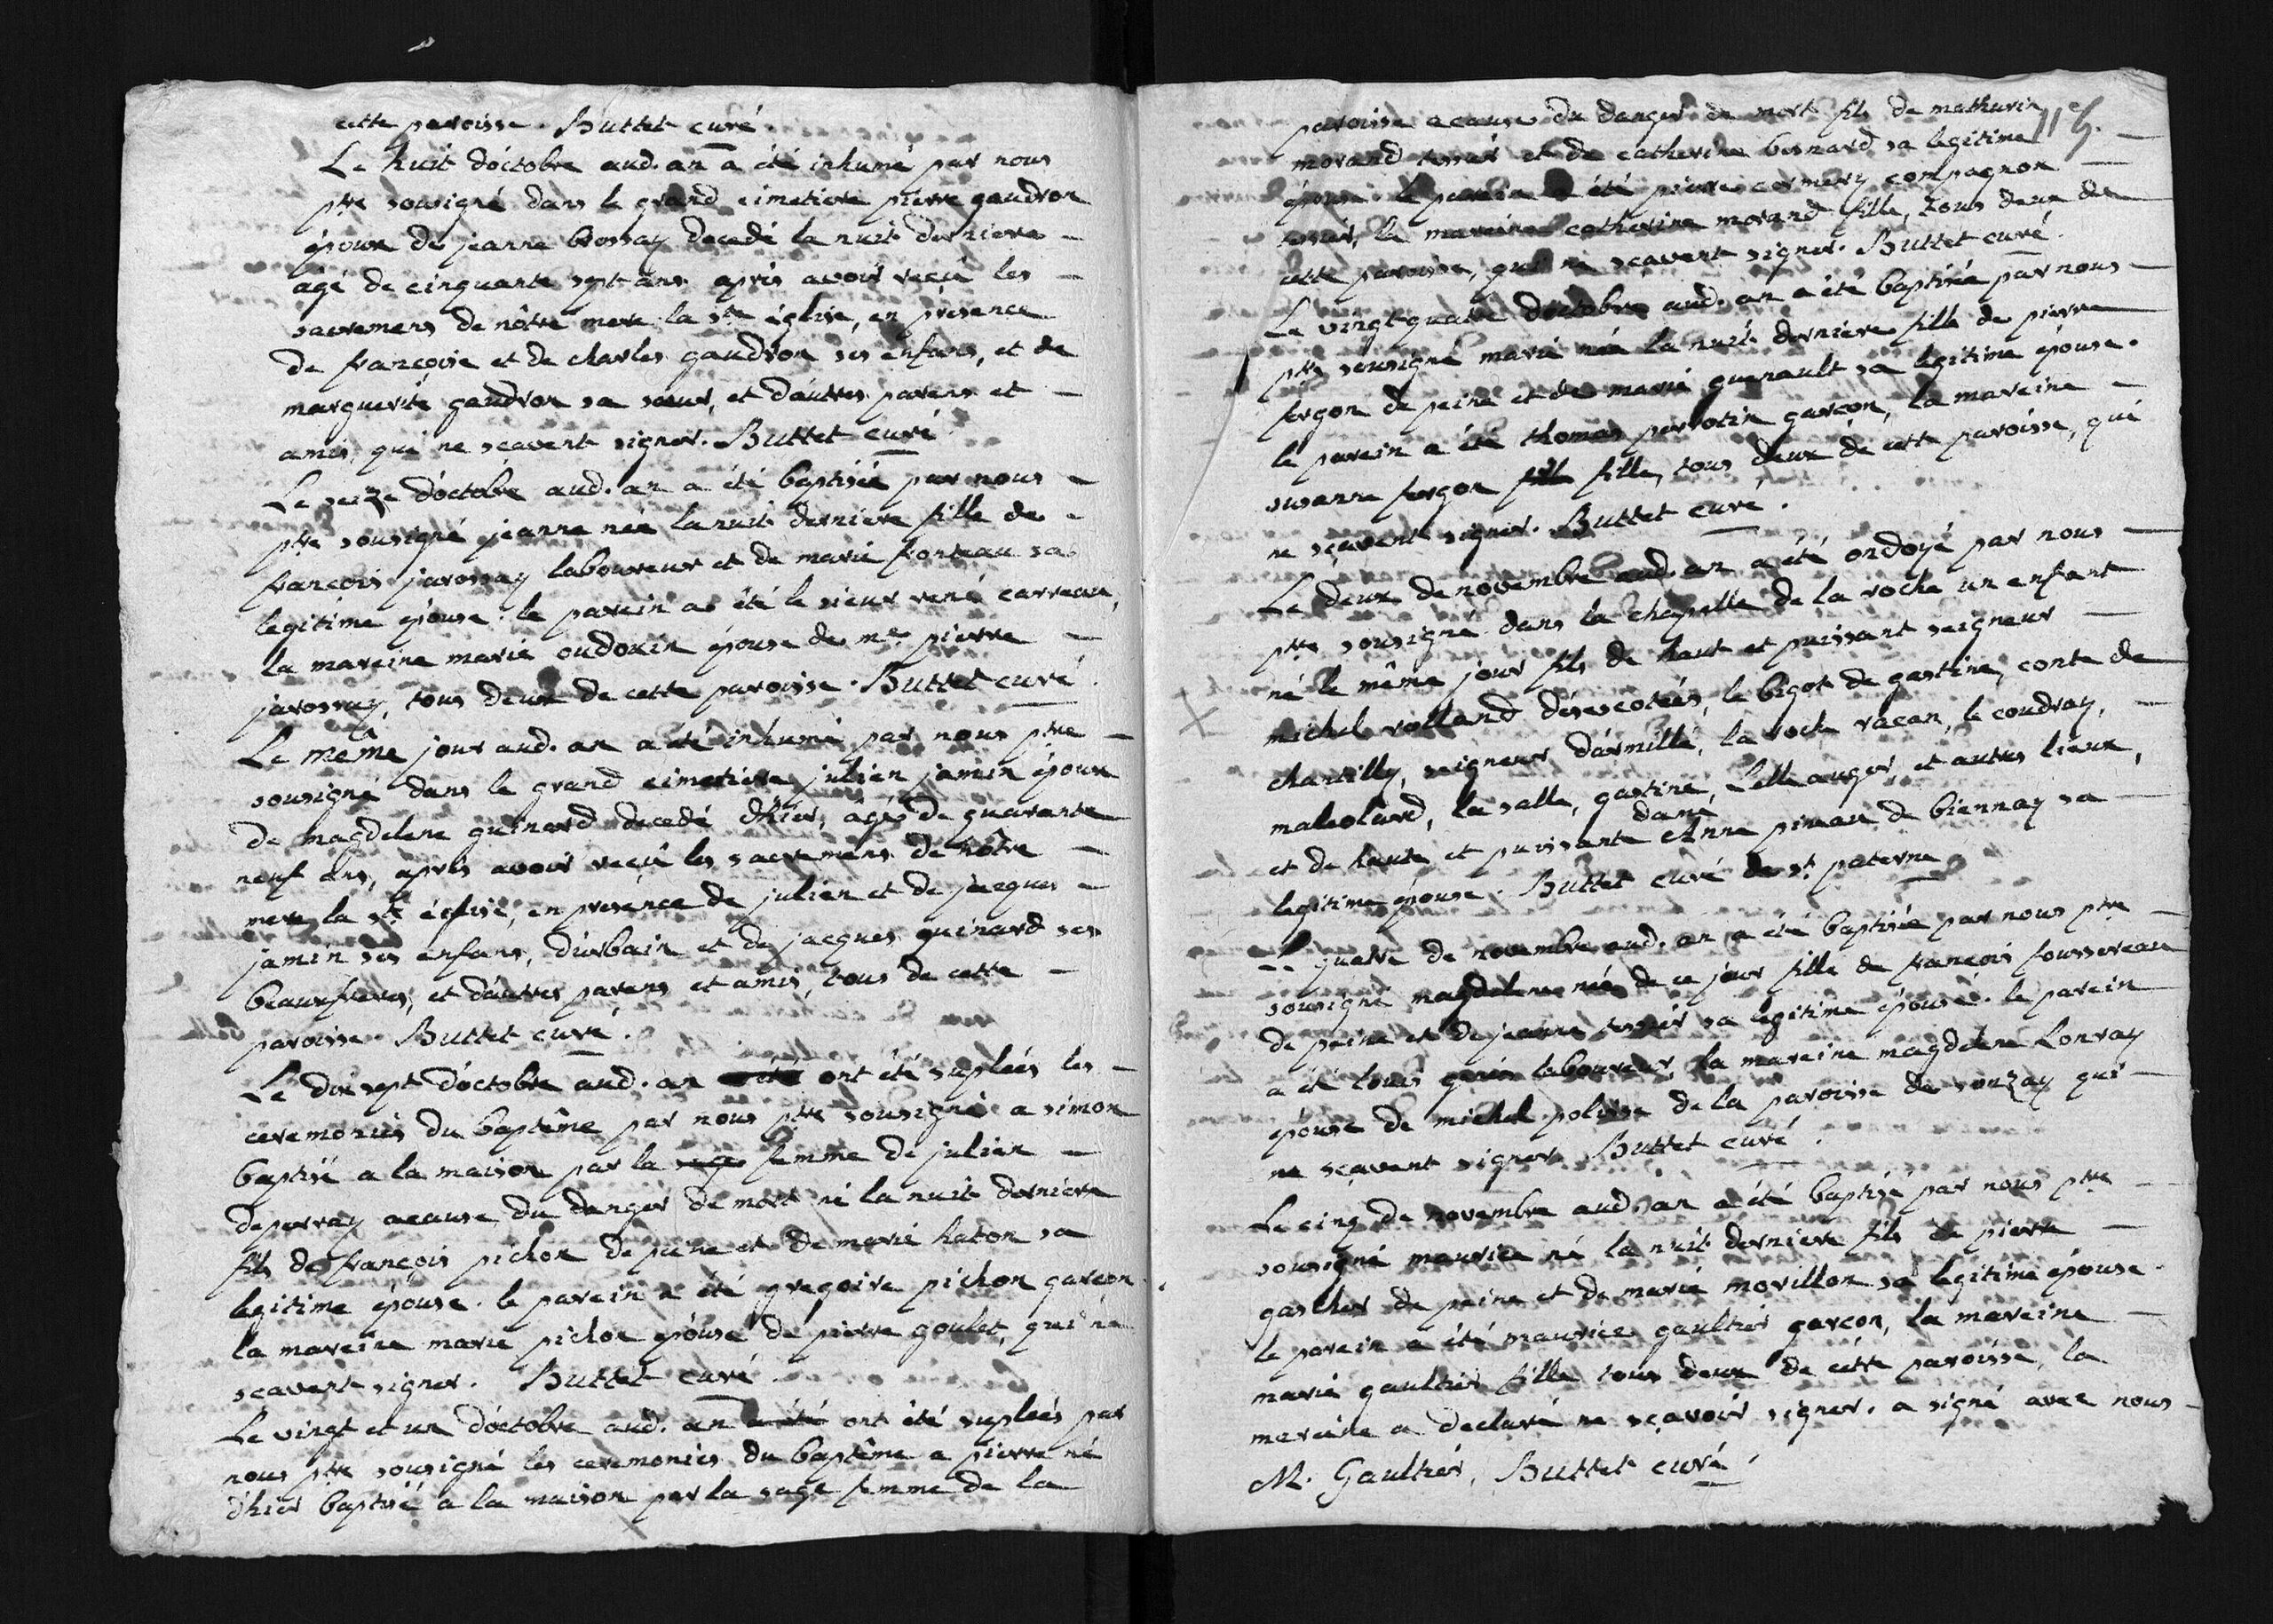 cette paroisse. Buttet curé
Le huit d'octobre aud. an a été inhumé par nous
ptre sousigné dans le grand cimetiere pierre gaudron
époux de jeanne brossay decedé la nuit derniere
agé de cinquante sept ans après avoir reçu les
sacremens de nôtre mere la ste église, en présence
de françoise et de charles gaudron ses enfans, et de
marguerite gaudron sa sœur, et d'autres parens et
amis, qui ne sçavent signer. Buttet curé
Le seize d'octobre aud. an a été baptisée par nous
ptre sousigné jeanne née la nuit derniere fille de
françois jarossay laboureur et de marie fonteau sa
legitime épouse. le parein a été le sieur rené carreau,
la mareine marie oudouin épouse de me. pierre
jarossay, tous deux de cette paroisse. Buttet curé
Le même jour aud. an a été inhumé par nous ptre
sousigné dans le grand cimetiere julien jamin époux
de magdelene guinard decedé d'hier, agé de quarante
neuf ans, après avoir reçu les sacremens de nôtre
mere la ste église, en presence de julien et de jacques
jamin ses enfans, d'urbain et de jacques guinard ses
beauxfreres, et d'autres parens et amis, tous de cette
paroisse. Buttet curé.
Le dixsept d'octobre aud. an a été ont été suplées les
ceremonies du baptême par nous ptre sousigné a simon
baptisé a la maison par la sage femme de julien
deperray acause du danger de mort né la nuit derniere
fils de françois pichon de peine et de marie haton sa
legitime épouse. le parein a été gregoire pichon garçon
la mareine marie pichon épouse de pierre goulet, qui ne
sçavent signer. Buttet curé
Le vingt et un d'octobre aud. an a été ont été suplées par
nous ptre sousigné les ceremonies du baptême a pierre né
d'hier baptisé a la maison par la sage femme de la
115.
paroisse acause du danger de mort fils de mathurin
morand tessier et de catherine besnard sa legitime
épouse. le parein a été pierre cormery compagnon
tessier, la mareine catherine morand fille, tous deux de
cette paroisse, qui ne sçavent signer. Buttet curé.
Le vingt quatre d'octobre aud. an a été baptisée par nous
ptre sousigné marie née la nuit derniere fille de pierre
forgon de peine et de marie guenault sa legitime épouse.
le parein a été thomas perrotin garçon, la mareine
susanne forgon fill fille, tous deux de cette paroisse, qui
ne sçavent signer. Buttet curé.
Le deux de novembre aud. an a été ondoyé par nous
ptre sousigné dans la chapelle de la roche un enfant
né le même jour fils de haut et puissant seigneur
michel rolland désescotées, le bigot de gastine, conte de
chantilly, seigneur d'armillé, la roche racan, le coudray,
malcolard, la salle, gastine, l'elle auger, et autres lieux,
et de haute et puissante dame Anne pineau de biennay sa
legitime épouse. Buttet curé de st. paterne
Le quatre de novembre aud. an a été baptisée par nous ptre
sousigné magdelene née de ce jour fille de françois foussereau
de peine et de jeanne tessier sa legitime épouse. le parein
a été louis laboureur, la mareine magdelene Lonray
épouse de michel polisse de la paroisse de souzay qui
ne sçavent signer. Buttet curé.
Le cinq de novembre aud. an a été baptisé par nous ptre
sousigné maurice né la nuit derniere fils de pierre
gascher de peine et de marie morillon sa legitime épouse.
le parein a été maurice gaultier garçon, la mareine
marie gaultier fille tous deux de cette paroisse, la
mareine a declaré ne sçavoir signer. a signé avec nous
M. Gaultier, Buttet curé.